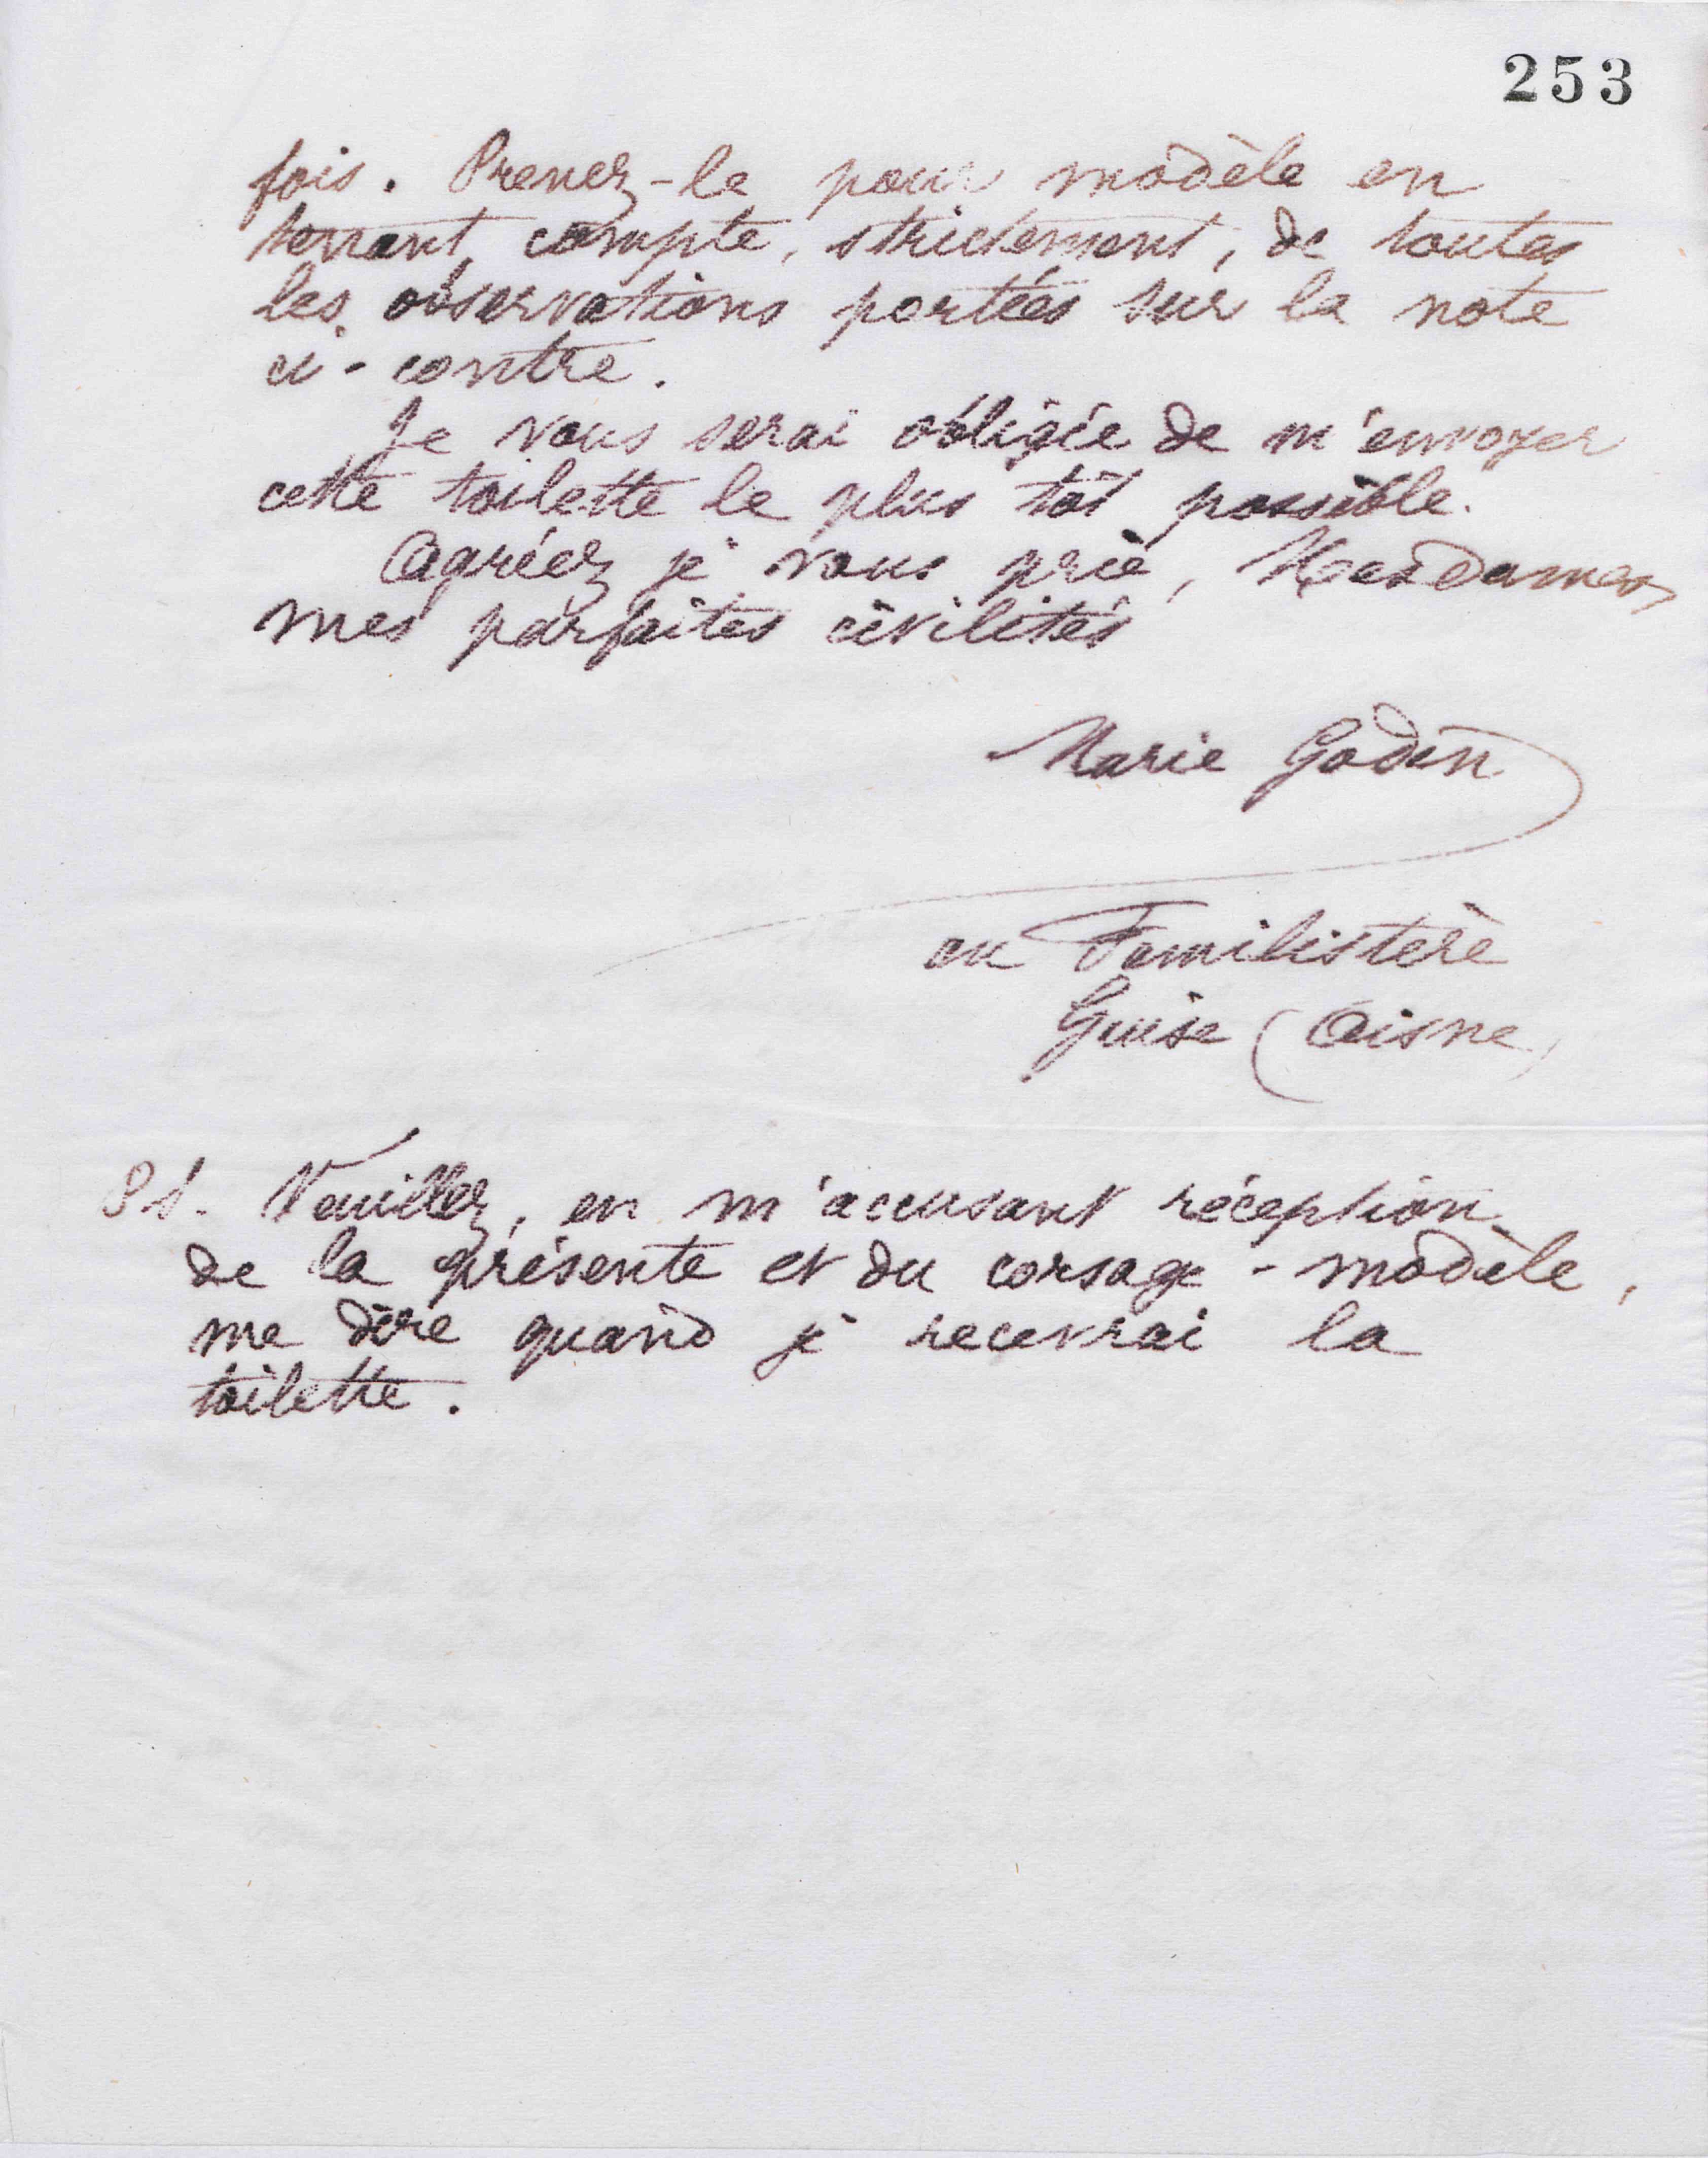 253
fois. Prenez-le pour modèle en
tenant compte, strictement, de toutes
les observations portées sur la note
ci-contre.
Je vous serai obligée de m'envoyer
cette toilette le plus tôt possible.
Agréez je vous prie, Mesdames,
mes parfaites civilités
Marie Godin
au Familistère
Guise (Aisne)
PS. Veuillez, en m'accusant réception
de la présente et du corsage-modèle,
me dire quand je recevrai la
toilette.